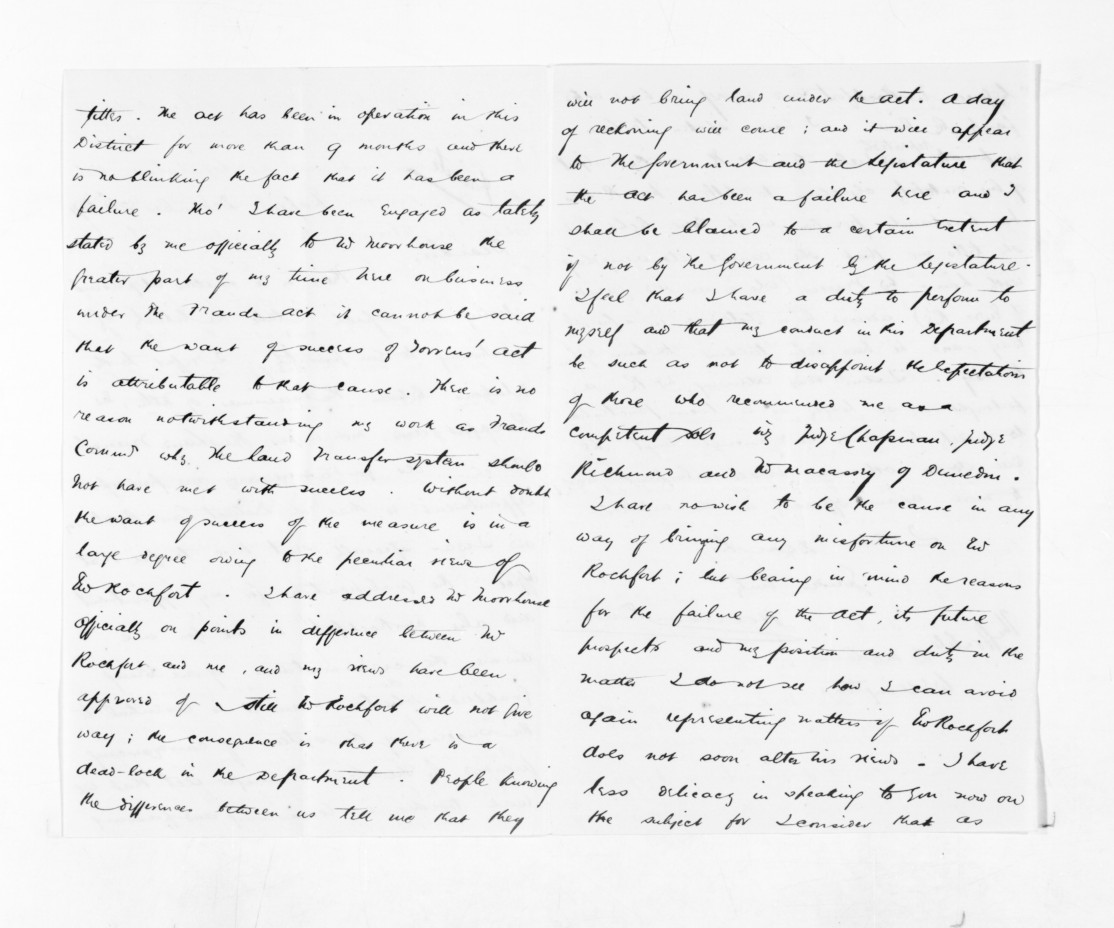 titles. The act has been in operation in this
District for more than 9 months and there
is no blinking the fact that it has been a
failure. Tho' I have been engaged as lately
stated by me officially to Mr Moorhouse the
greater part of my time here on business
under the Frauds act it cannot be said
that the want of success of Torrens' act
is attributable to that cause. There is no
reason notwithstanding my work as Frauds
Commr why the land Transfer system should
not have met with success. Without doubt
the want of success of the measure is in a
large degree owing to the peculiar views of
Mr Rochfort. I have addressed Mr Moorhouse
officially on points in difference between Mr
Rochfort and me, and my views have been
approved of still Mr Rochfort will not give
way; the consequence is that there is a
dead-lock in the Department. People knowing
the differences between us tell me that they
will not bring land under the act. A day
of reckoning will come; and it will appear
to the Government and the Legislature that
the act has been a failure here and I
shall be blamed to a certain extent
if not by the Government by the Legislature.
I feel that I have a duty to perform to
myself and that my conduct in this Department
be such as not to disappoint the expectations
of those who recommended me as a
competent solr viz Judge Chapman, Judge
Richmond and Mr Macassey of Dunedin.
I have no wish to be the cause in any
way of bringing any misfortune on Mr
Rochfort; but bearing in mind the reasons
for the failure of the act, its future
prospects and my position and duty in the
matter I do not see how I can avoid
again representing matters if Mr Rochfort
does not soon alter his views. I have
less delicacy in speaking to you now on
the subject for I consider that as